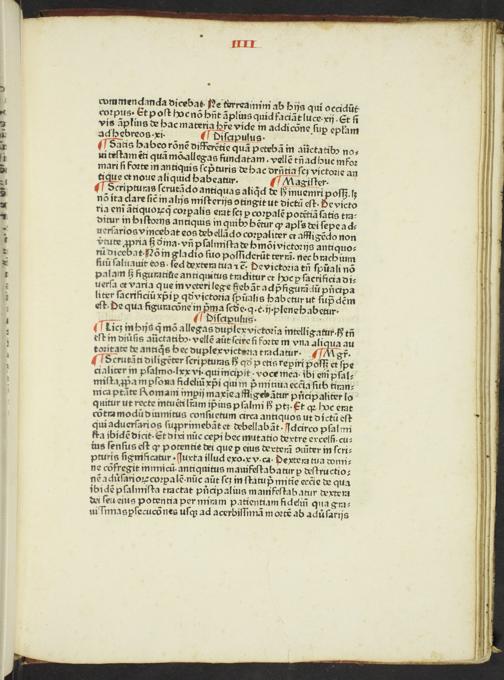 IIII
commendanda dicebat. Ne terreamini ab hijs qui occidūt
corpus. Et post hoc nō hn̄t āplius quid faciāt luce.xij. Et si
vis āplius de hac materia hr̄e vide in addicōne sup ep̄lam
ad hebreos.xi. ¶ Discipulus.
¶ Satis habeo rōnē differētie quā petebā in auctatib9 no-
ui testam̄ti quā mō allegas fundatam. vellē tn̄ ad huc īfor
mari si forte in antiquis sc̄pturis de hac dr̄ntia sci victorie an
tique et noue aliquid habeatur. ¶ Magister.
¶ Scripturas scrutādo antiquas aliqd de h̄ inuenri poss3. l3
nō ita clare sic̄ in alijs misterijs ɔtingit ut dictū est. De victo
ria eni antiquor̄ q corpalis erat sci p corpalē potētiā satis tra
ditur in historijs antiquis in quib9 hētur qp aplis dei sepe a de
uersarios vincebat eos debellādo corpaliter et affligēdo non
v̄tute ppria s3 dīna. vn̄ psalmista de hmōi victorijs antiquo-
rū dicebat. Nō in gladio suo possiderūt terrā. nec brachium
suū saluauit eos. sed dextera tua ⁊c̄. De victoria tn̄ spūali nō
palam s3 figuratiue antiquitus traditur et hoc p sacrificia di-
uersa et varia que in veteri lege fiebāt ad p̄figurādū pn̄cipa
liter sacrificiū xp̄i p qd victoria spūalis habetur ut sup̄ dēm
est. De qua figuracōne in p̄ma scd̄e.q.c ij.plene habetur.
¶ Discipulus.
¶ Lic3 in hijs q̄ mō allegas duplex victoria intelligatur. h̄ tn̄
est in diuīsis auctatib9. vellē aūt scire si forte in vna aliqua au
toritate de antiqis hec duplex victoria tradatur. ¶ Mgr̄.
¶ Scrutanti diligēter scripturas h̄ qd petis repiri poss3 et spe
cialiter in psalmo.lxxvi. qui incipit. voce mea. ibi eni psal-
mista ppa in psona fideliū xp̄i qui in p̄mitiua ecc̄ia sub tiran-
nica p̄tāte Romani impij maxie affligebātur pn̄cipaliter lo
quitur ut recte intuetī l̄ram ip̄ius psalmi h̄ pt3. Et qr̄ hoc erat
cōtra modū diuinitus consuetum circa antiquos ut dictū est
qui aduersarios supprimebāt et debellabāt. Idcirco psalmi
sta ibidē dicit. Et dixi nūc cepi hec mutatio dextre excelsi. cu-
ius sensus est qr̄ potentie dei que p eius dexterā oīniter in scri-
pturis significatur. Iuxta illud exo.xv.ca. Dextera tua domi-
ne cōfregit inimicū. antiquitus manifestabatur p destructio-
nē adūsarior̄ corpalē. nūc aūt sci in statu p̄mitie ecc̄ie de qua
ibidē psalmista tractat pn̄cipalius manifestabatur dextera
dei seu eius potentia per miram patientiam fideliū qua gra-
uissimas psecucōnes usq3 ad acerbissimā mortē ab adūsarijs